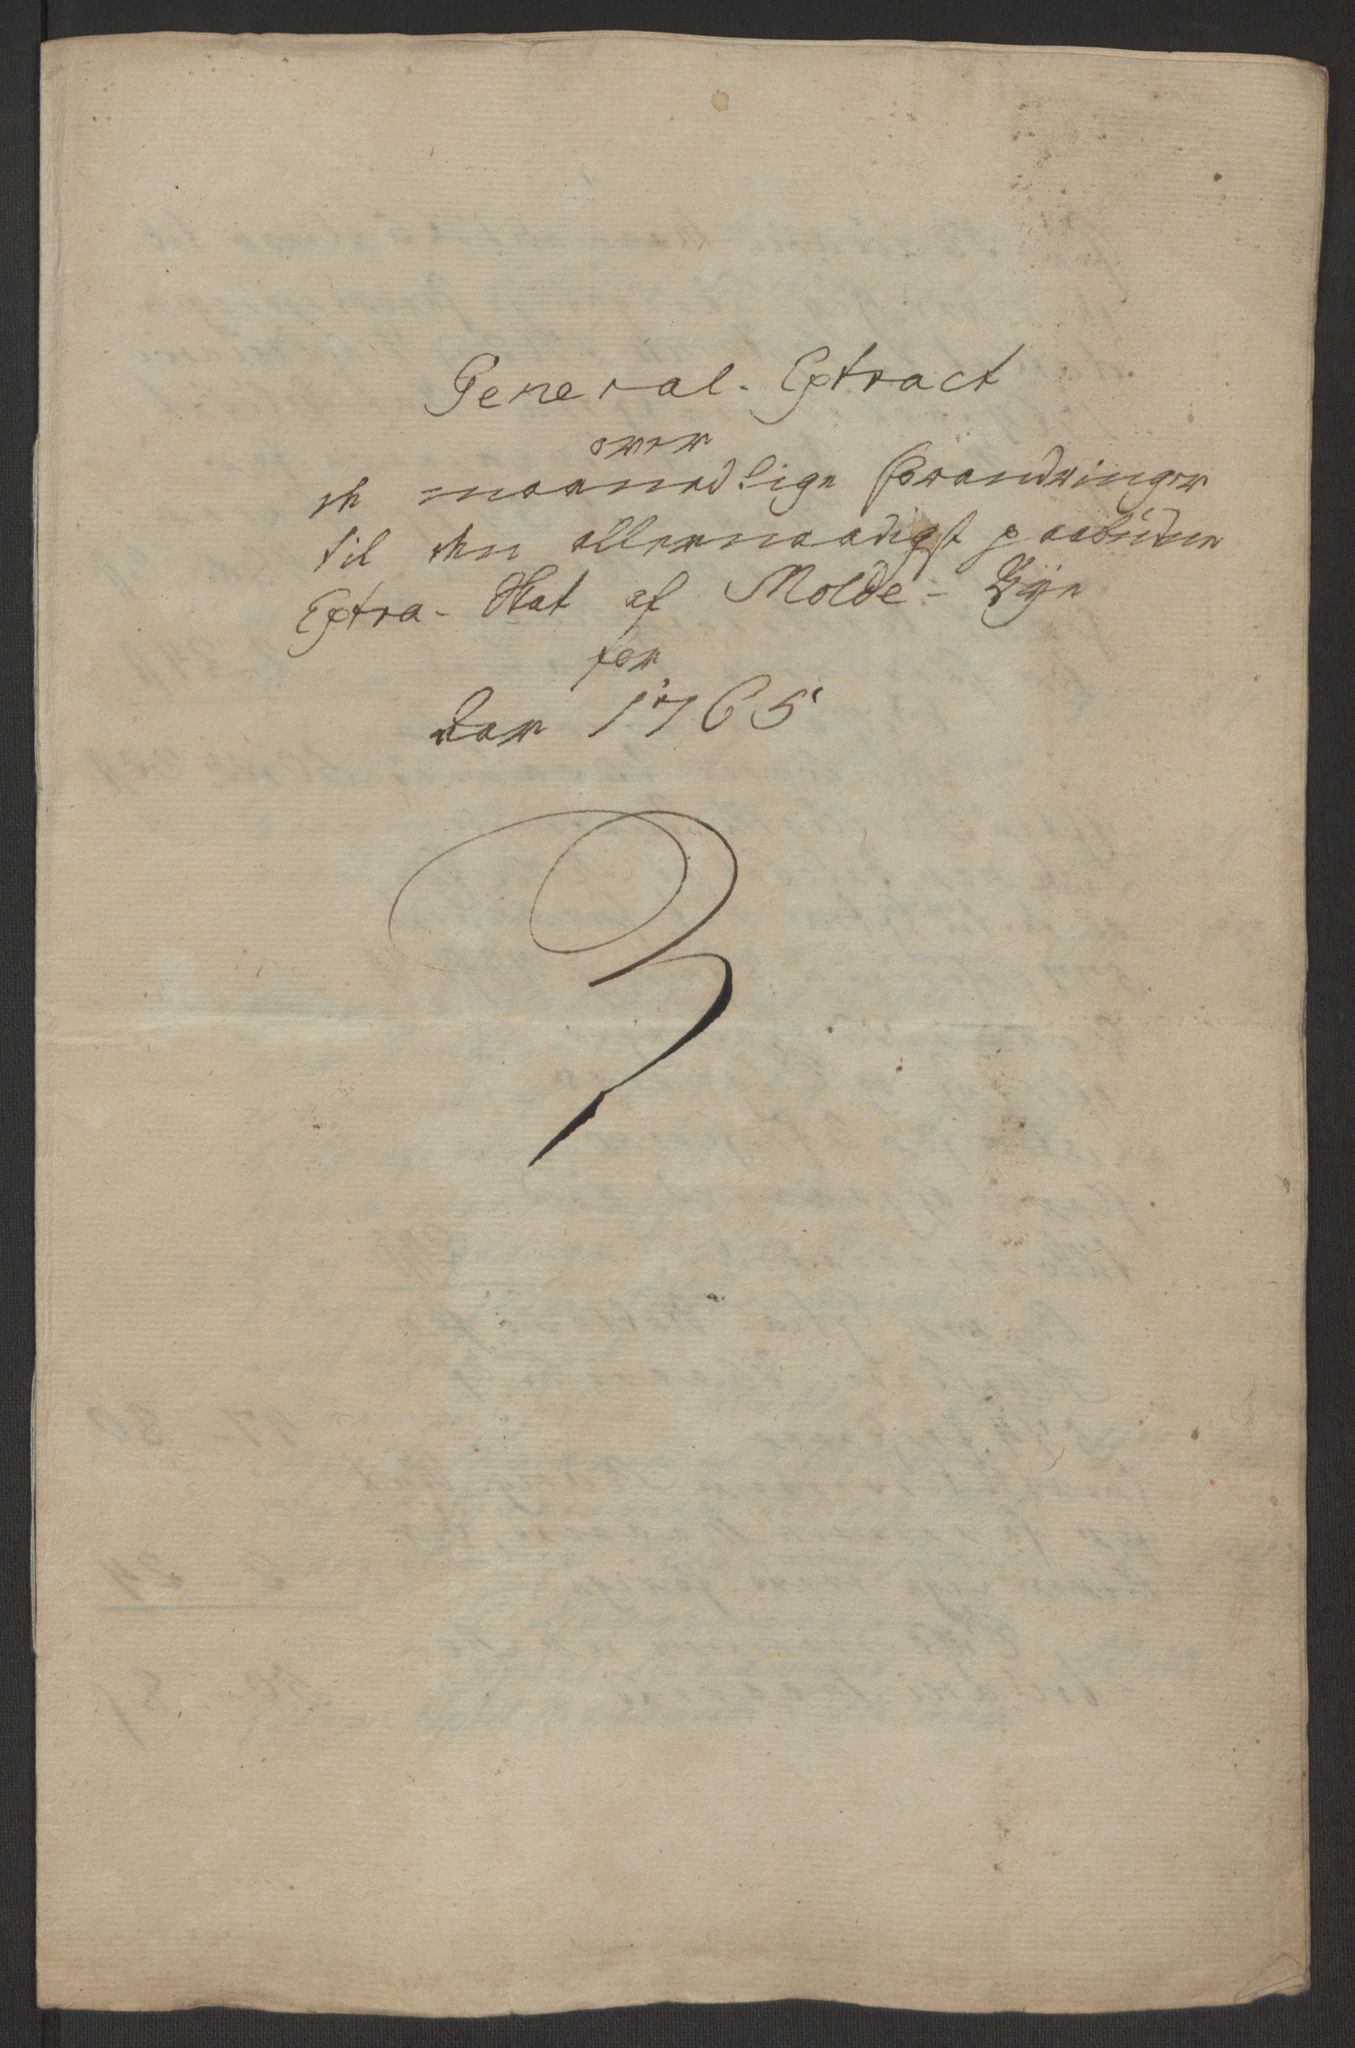 General-Extract
over
de maanedlige Forandringer
til den allernaadigst paabudne
Extra-Skat af Molde-Bye
for
Aar 1765